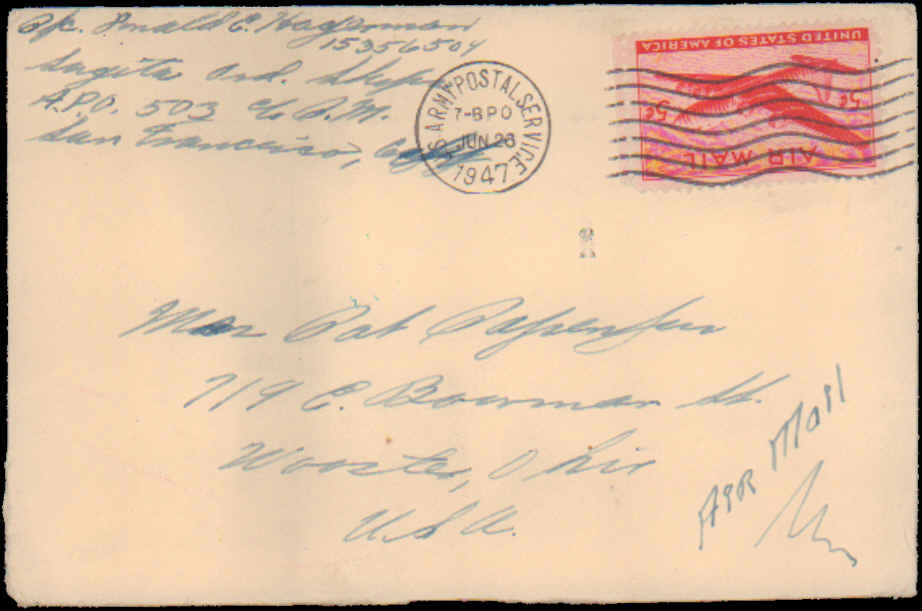 Pfc. Donald E. Hagerman
15356504
Sagita Ord. Shops
A.P.O. 503 c/o P.M.
San Francisco, Calif
U.S. ARMY POSTAL SERVICE
7-B PO
JUN 26
1947
UNITED STATES OF AMERICA
5¢ 5¢
AIR MAIL
Pat
719 E. Bowman St.
Wooster, Ohio
U.S.A.
AIR MAIL